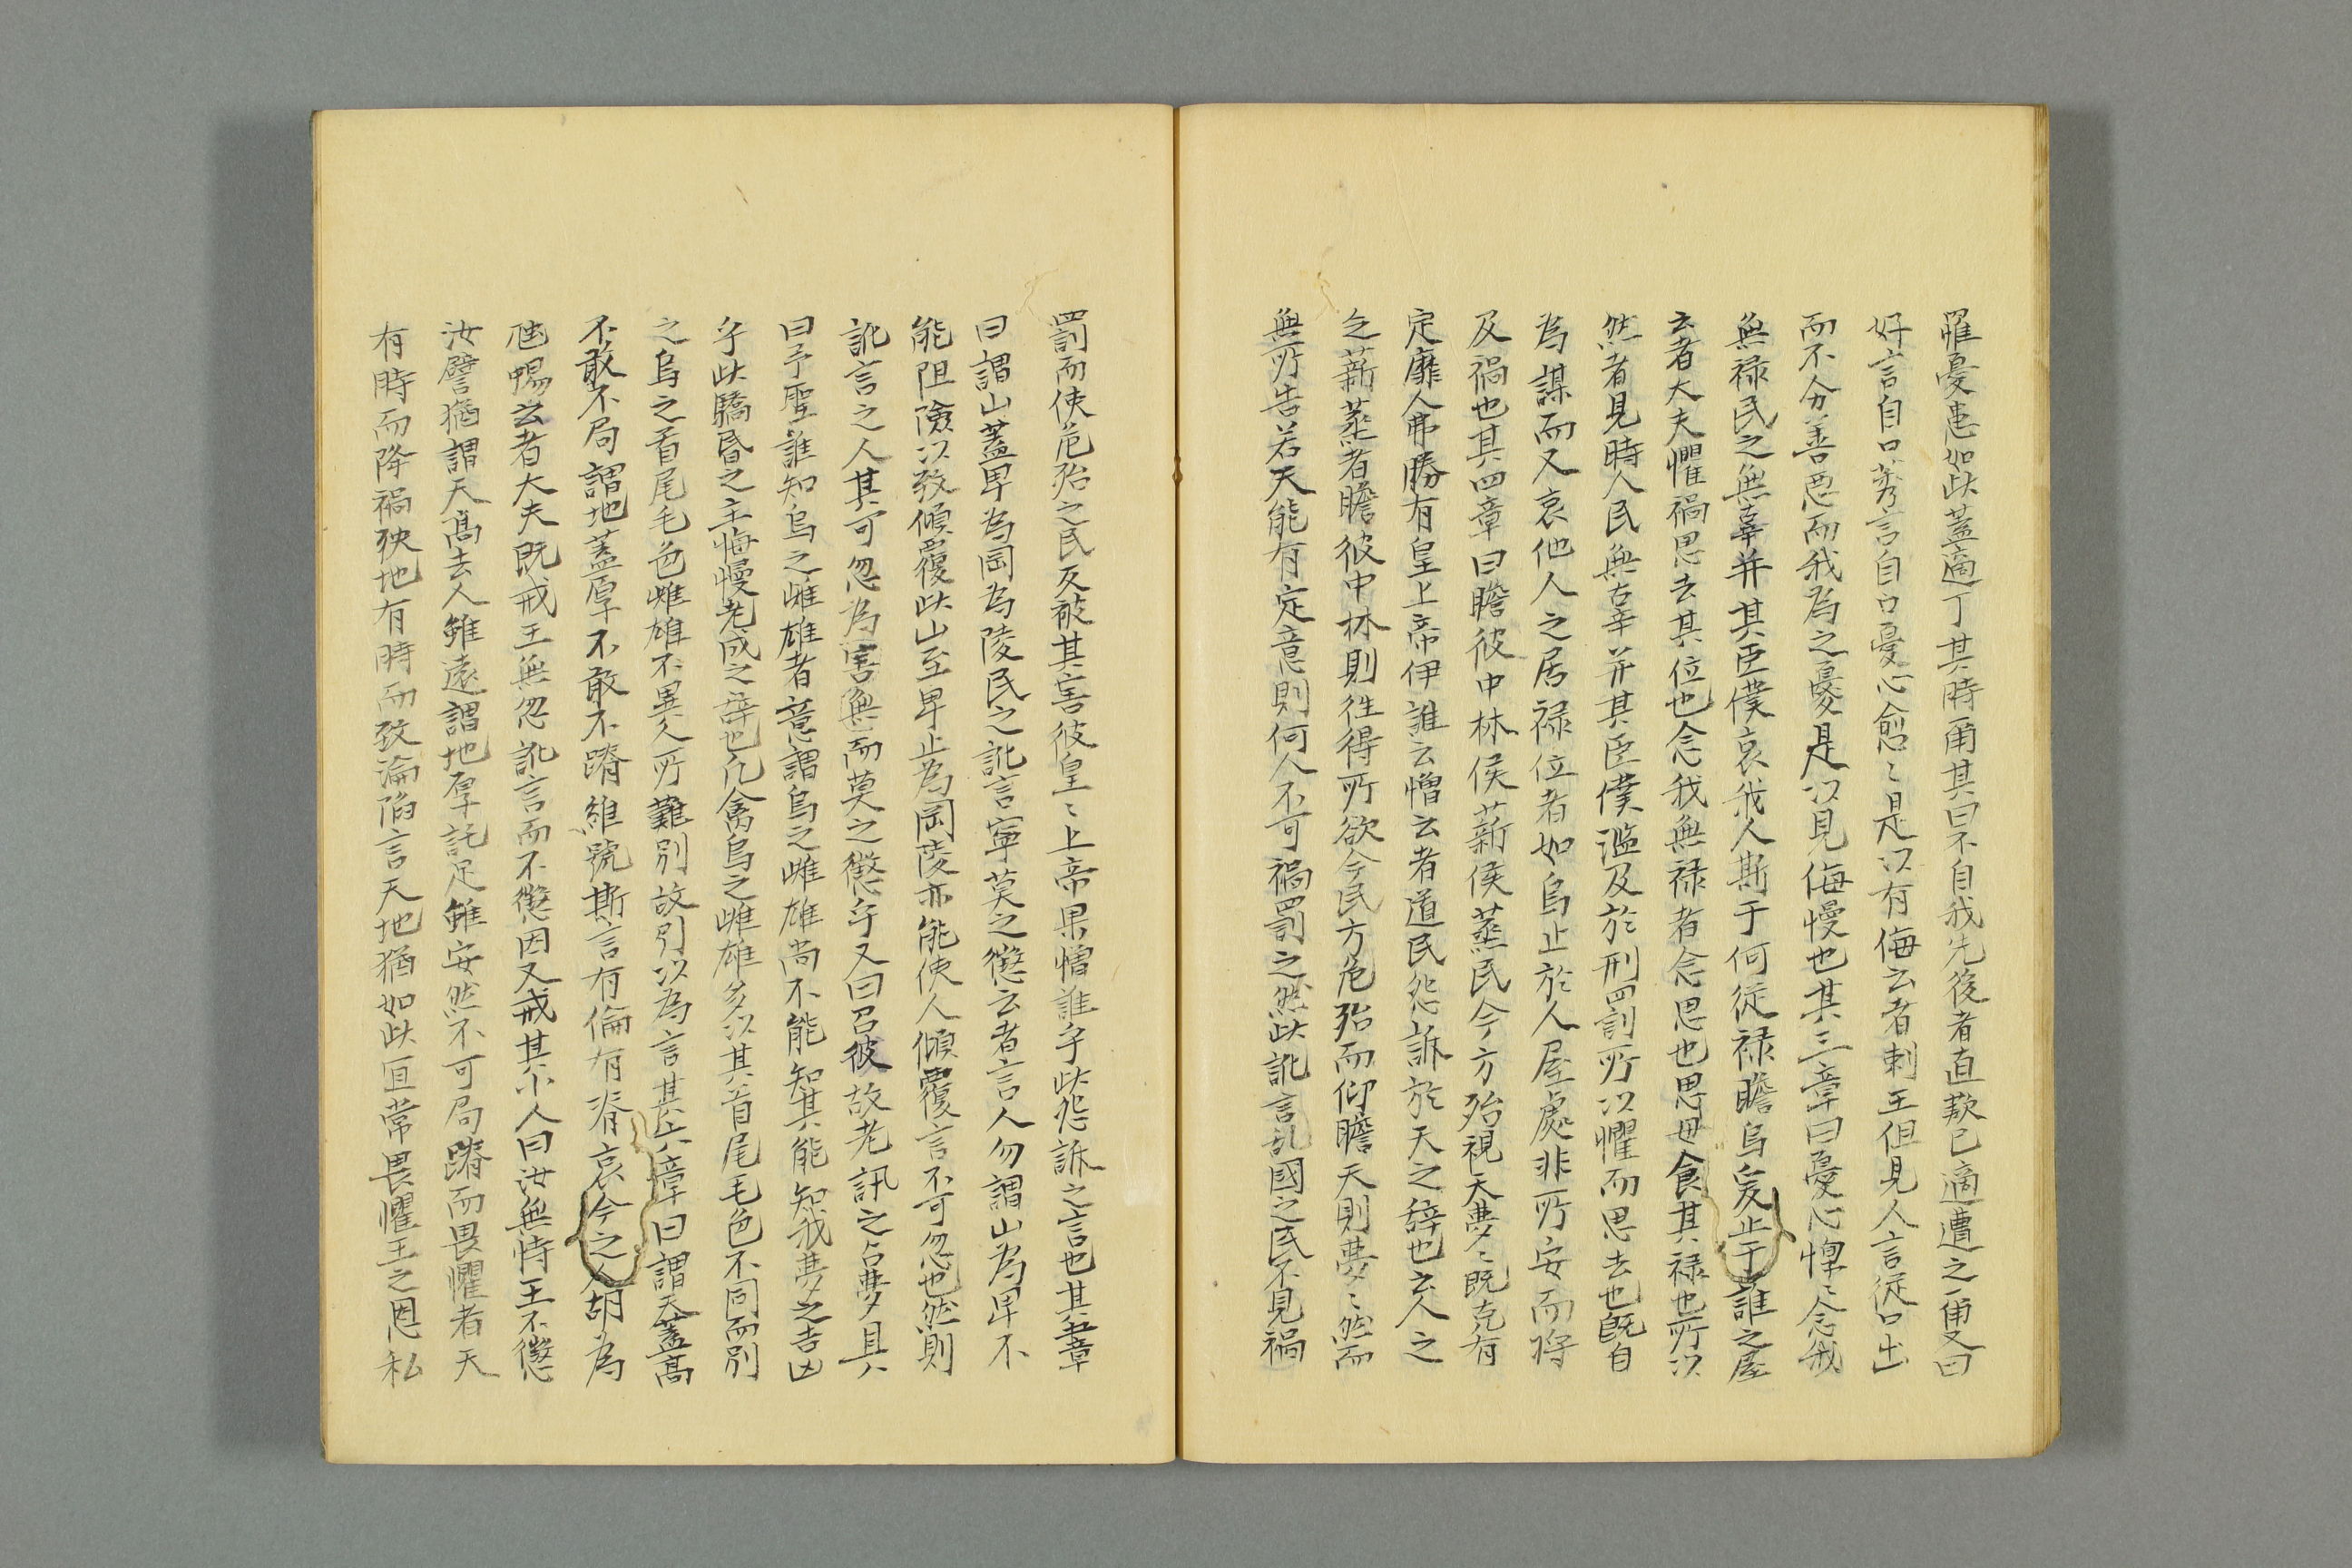 罹憂患如此蓋適丁其時甬其曰不自我先後者直歎已適遭之甬又曰
好言自口莠言自口憂心愈〻是以有侮云者刺王但見人言從口出
而不分善惡而我為之憂是以見侮慢也其三章曰憂心惸〻念我
無禄民之無辜并其臣僕哀我人斯于何從禄瞻烏爰止于誰之屋
云者大夫懼禍思去其位也念我無禄者念思也思毋食其禄也所以
然者見時人民無辜并其臣僕濫及於刑罰所以懼而思去也既自
為謀而又哀他人之居禄位者如烏止於人屋處非所安而将
及禍也其四章曰瞻彼中林侯薪侯蒸民今方殆視天夢〻既克有
定靡人弗勝有皇上帝伊誰云憎云者道民怨訴於天之辝也云人之
之薪蒸者瞻彼中林則徃得所欲今民方危殆而仰瞻天則夢〻然而
無所告若天能有定意則何人不可禍罰之然此訛言乱國之民不見禍
罰而使危殆之民反被其害彼皇〻上帝果憎誰乎此怨訴之言也其五章
曰謂山蓋卑為岡為陵民之訛言寧莫之懲云者言人勿謂山為卑不
能阻險以致傾覆此山至卑止為岡陵亦能使人傾覆言不可忽也然則
訛言之人其可忽為害無而莫之懲乎又曰召彼故老訊之占夢具
曰予聖誰知烏之雌雄者意謂烏之雌雄尚不能知其能知我夢之吉凶
乎此驕昏之主侮慢老成之辝也凡禽鳥之雌雄多以其首尾毛色不同而別
之烏之首尾毛色雌雄不異人所難別故引以為言其六章曰謂天蓋高
不敢不局謂地蓋厚不敢不蹐維號斯言有倫有脊哀今之人胡為
虺蜴云者大夫既戒王無忽訛言而不懲因又戒其小人曰汝無恃王不懲
汝譬猶謂天高去人雖遠謂地厚託足雖安然不可局蹐而畏懼者天
有時而降禍殃地有時而致淪陷言天地猶如此亘常畏懼王之恩私